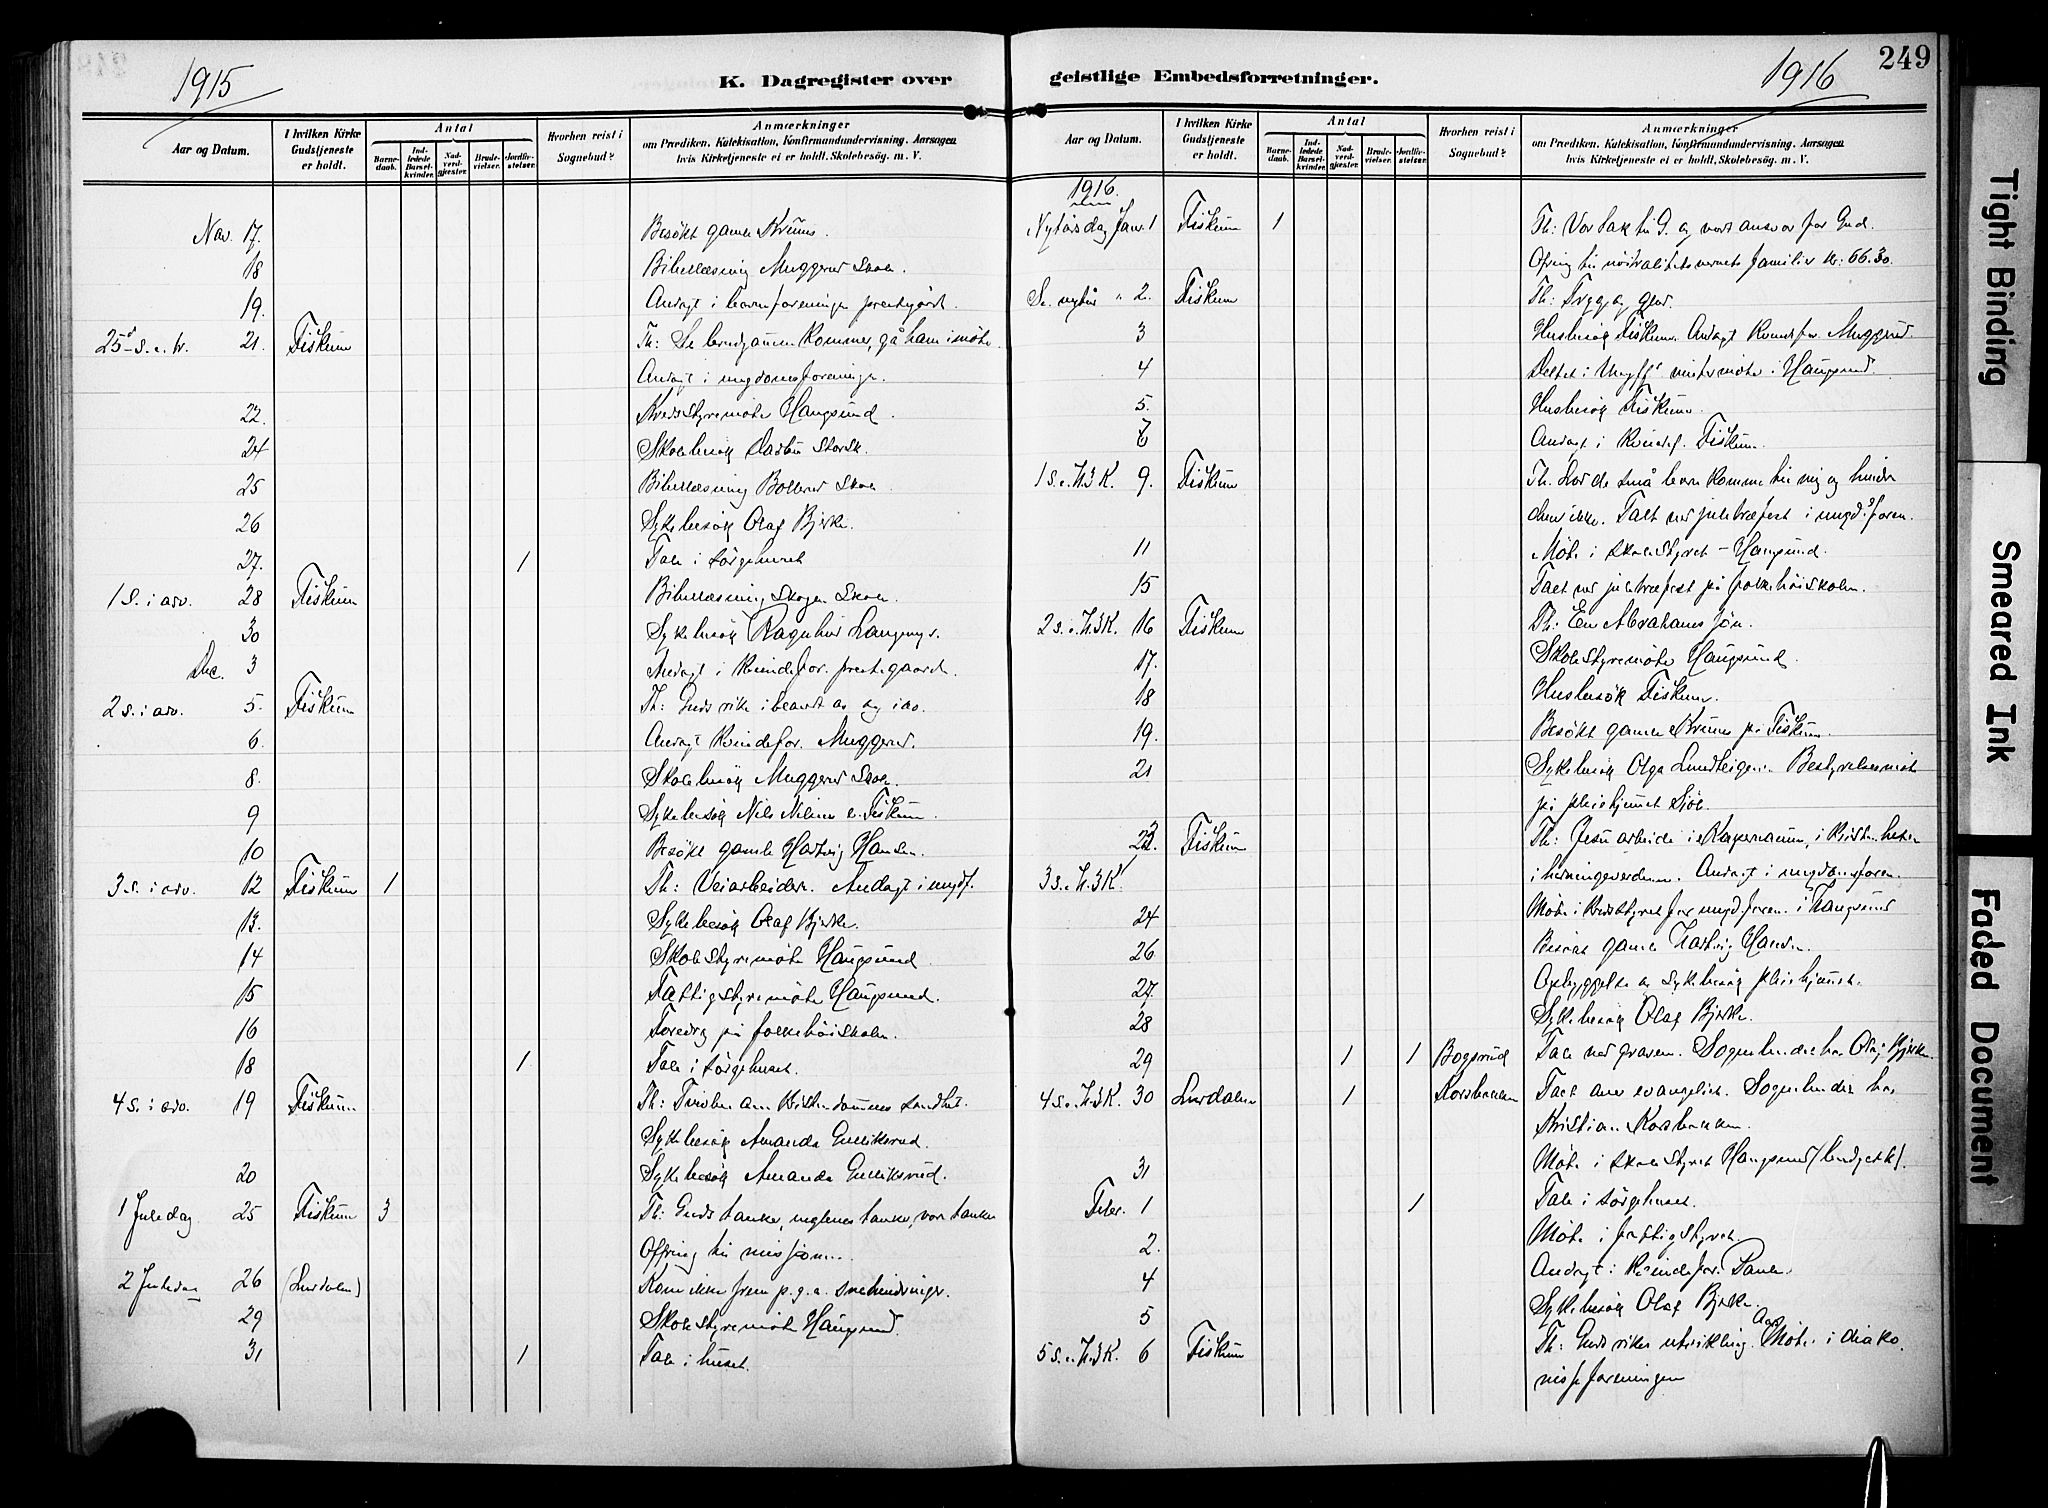 249
1915
K. Dagregister over
Aar og Datum.
I hvilken Kirke Gudstjeneste er holdt.
Antal
Barnedaab.
Indledede Barselkvinder.
Nadverdgjæster.
Brudevielser.
Jordfæstelser.
Hvorhen reist i Sognebud?
Anmærkninger
om Prædiken, Katekisation, Konfirmandundervisning, Aarsagen
hvis Kirketjeneste ei er holdt, Skolebesøg, m. V.
Nov. 17. Besøkt gamle
18 Bibellæsning Muggerud Skole.
19. Andagt i
25d s.e. tr. 21. Fiskum Th: Se brudgommen kommer, gå ham i møte.
Andagt i ungdomsforeningen.
22. Kredsstyremøte Haugsund.
24 Skolebesøk Darbu Storsk.
25 Bibellæsning Bollerud Skole
26 Sykebesøk Olaf Bjerke.
27. 1 Tale i sørgehuset
1 s. i adv. 28 Fiskum Bibellæsning Skogen Skole.
30 Sykebesøk Ragnhild
Dec. 3 Andagt i Kvindefor. prestegaard.
2 s. i adv. 5. Fiskum Th: Guds rike
6. Andagt Kvindefor. Muggerud.
8. Skolebesøk Muggerud Skole.
9 Sykebesøk Nils Nilsen Fiskum.
10 Besøkt gamle Hartvig Hansen.
3 s. i adv. 12 Fiskum 1 Th: Veiarbeider. Andagt i ungdf.
13. Sykebesøk Olaf Bjerke.
14 Skolestyremøte Haugsund.
15 Fattigstyremøte Haugsund.
16 Foredrag på folkehøiskolen.
18 1 Tale i sørgehuset.
4 s. i adv. 19 Fiskum Th: Tvilen om Kristendommens sandhet.
Sykebesøk Amanda Gulliksrud.
20 Sykebesøk Amanda Gulliksrud.
1 Juledag 25 Fiskum 3 Th: Guds tanke, englenes tanke, vor tanke
Offring til misjonen.
2 Juledag 26 (Lurdalen) Kom ikke frem p.g.a. snehindringer.
29 Skolestyremøte Haugsund.
31 1 Tale i huset.
1916
geistlige Embedsforretninger.
Aar og Datum.
I hvilken Kirke Gudstjeneste er holdt.
Antal
Barnedaab.
Indledede Barselkvinder.
Nadverdgjæster.
Brudevielser.
Jordfæstelser.
Hvorhen reist i Sognebud?
Anmærkninger
om Prædiken, Katekisation, Konfirmandundervisning, Aarsagen
hvis Kirketjeneste ei er holdt, Skolebesøg, m. V.
1916.
Nytårsdag Jan. 1 Fiskum 1 Th: Vor tak til G. og vort ansvar for Gud.
Ofring til nøitralitetsvernets familier kr: 66.30.
S.e. nytår " 2. Fiskum Th: Trygg og glad.
3 Husbesøk Fiskum. Andagt Kvindefor. Muggerud.
4 Deltat i vintermøte i Haugsund.
5. Husbesøk Fiskum.
7 Andagt i Kvindef. Fiskum.
1 s.e. H.3K. 9. Fiskum Th. Lad de små barn komme til mig og hindre
dem ikke. Talt ved juletræfest i ungd.sforen.
11 Møte i skolestyret - Haugsund.
15 Talt ved juletræfest på folkehøiskolen.
2 s.e. H.3K. 16 Fiskum Th: En Abrahams søn.
17. Skolestyremøte Haugsund.
18 Husbesøk Fiskum.
19. Besøkt gamle på Fiskum.
21 Sykebesøk Olga Lundteigen. Bestyrelsesmøte
på pleiehjemmet
23. Fiskum Th: Jesu arbeide i Kapernaum, i kristenheten
3 s.e. H.3K. i hedningeverdenen. Andagt i ungdomsforen.
24 Møte i kredsstyret for ungdforen. i Haugsund
26 Besøkt gamle Hartvig Hansen.
27. Opbyggelse og sykebesøk pleiehjemmet.
28 Sykebesøk Olaf Bjerke.
29 1 1 Bogsrud Tale ved graven. Sognebud hos Olaf Bjerke.
4 s.e. H.3K. 30 Lurdalen 1 Talt over evangeliet. Sognebud hos
Kristian
31 Møte i skolestyret Haugsund (budgett).
Febr. 1 1 Tale i sørgehuset.
2. Møte i fattigstyret.
4 Andagt i Kvindefor.
5 Sykebesøk Olaf Bjerke.
5 s.e. H.3K. 6 Fiskum Th: Guds rikes utvikling. Møte i diako.
foreningen